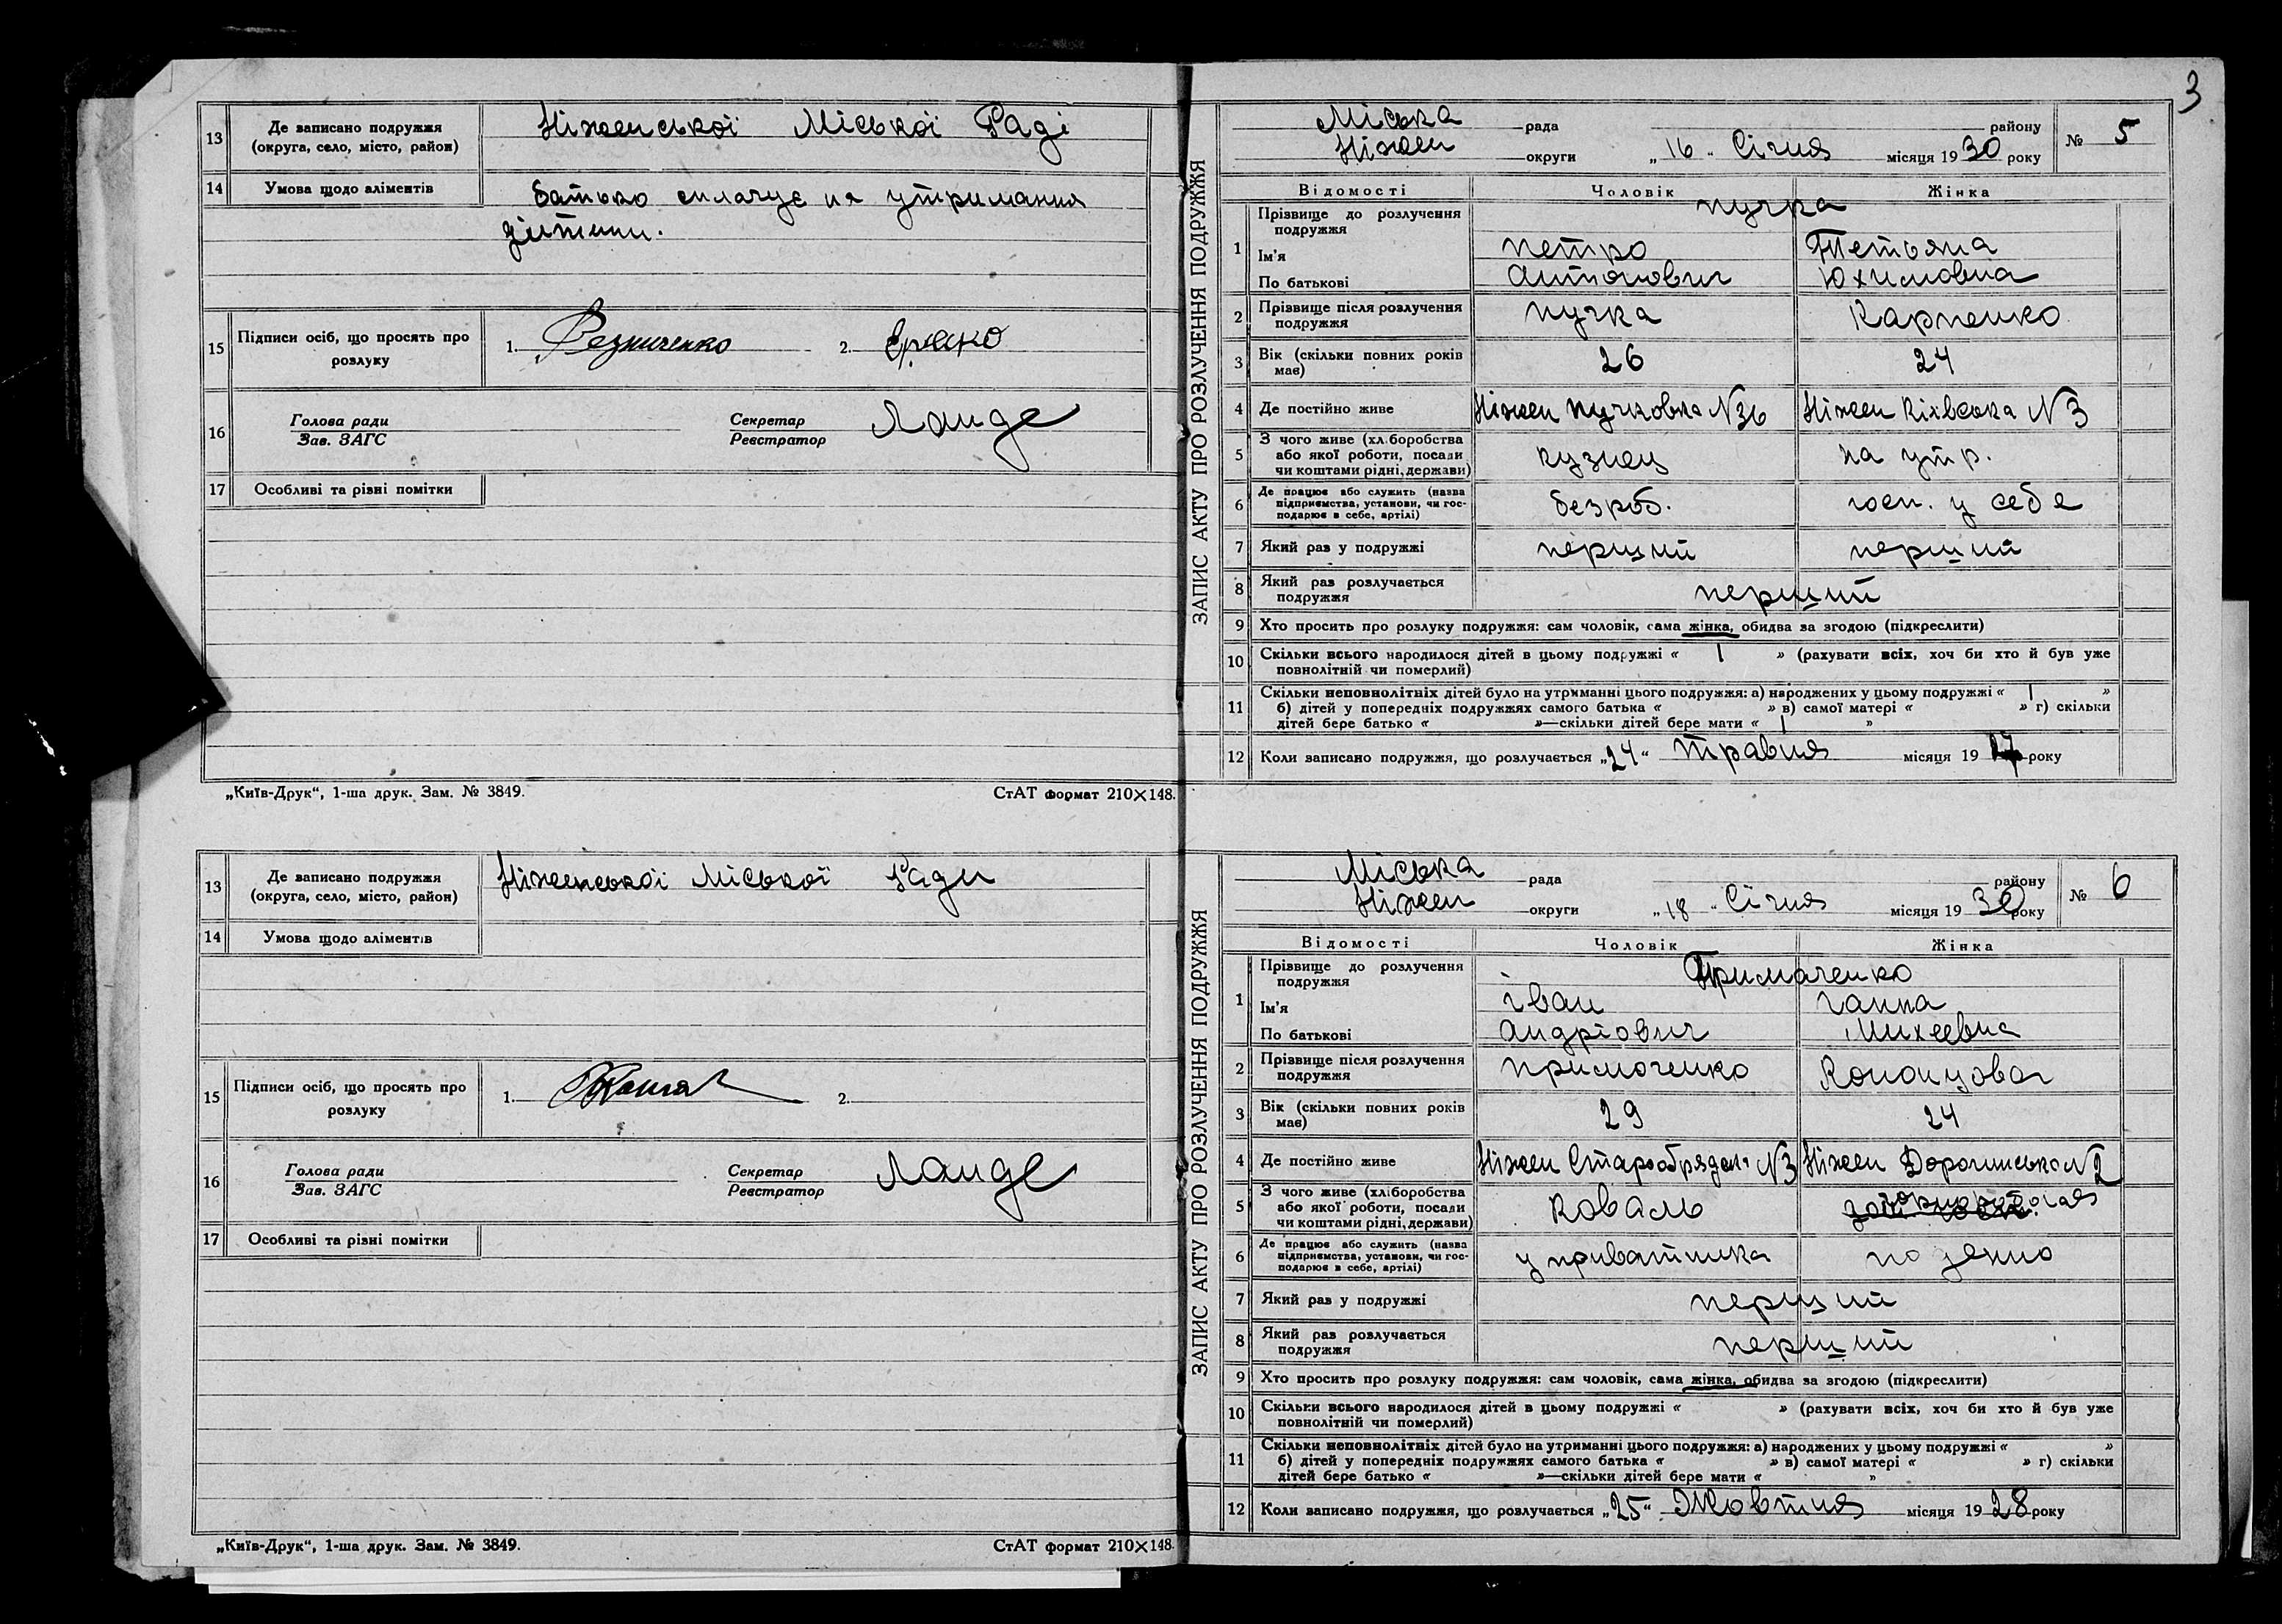 3
13 Де записано подружжя (округа, село, місто, район) Ніженської Міської Раді
14 Умова щодо аліментів батько сплачує на утримання
дитини.
15 Підписи осіб, що просять про розлуку 1. Резниченко 2.
16 Голова ради
Зав. ЗАГС
Секретар
Реєстратор Ланде
17 Особливі та різні помітки
„Київ-Друк“, 1-ша друк. Зам. № 3849. СтАТ формат 210×148.
ЗАПИС АКТУ ПРО РОЗЛУЧЕННЯ ПОДРУЖЖЯ
Міська рада району № 5
Ніжен округи „16“ Січня місяця 1930 року
Відомості Чоловік Жінка
1 Прізвище до розлучення подружжя пучка
Ім'я петро Тетьяна
По батькові Антонович Юхимовна
2 Прізвище після розлучення подружжя пучка Карпенко
3 Вік (скільки повних років має) 26 24
4 Де постійно живе Ніжен пучковка N36 Ніжен Киівська N3
5 З чого живе (хліборобства або якої роботи, посади чи коштами рідні, держави) кузнец на утр.
6 Де працює або служить (назва підприємства, установи, чи господарює в себе, артілі) безроб. госп. у себе
7 Який раз у подружжі перший перший
8 Який раз розлучається подружжя перший
9 Хто просить про розлуку подружжя: сам чоловік, сама жінка, обидва за згодою (підкреслити)
10 Скільки всього народилося дітей в цьому подружжі « 1 » (рахувати всіх, хоч би хто й був уже
повнолітній чи померлий)
11 Скільки неповнолітніх дітей було на утриманні цього подружжя: а) народжених у цьому подружжі « 1 »
б) дітей у попередніх подружжях самого батька « » в) самої матері « » г) скільки
дітей бере батько « »—скільки дітей бере мати « 1 »
12 Коли записано подружжя, що розлучається „24“ травня місяця 1927 року
13 Де записано подружжя (округа, село, місто, район) Ніженської Міської Ради
14 Умова щодо аліментів
15 Підписи осіб, що просять про розлуку 1. 2.
16 Голова ради
Зав. ЗАГС
Секретар
Реєстратор Ланде
17 Особливі та різні помітки
„Київ-Друк“, 1-ша друк. Зам. № 3849. СтАТ формат 210×148.
ЗАПИС АКТУ ПРО РОЗЛУЧЕННЯ ПОДРУЖЖЯ
Міська рада району № 6
Ніжен округи „18“ Січня місяця 1930 року
Відомості Чоловік Жінка
1 Прізвище до розлучення подружжя Примаченко
Ім'я іван ганна
По батькові Андріович Михеевна
2 Прізвище після розлучення подружжя примоченко Кононцова
3 Вік (скільки повних років має) 29 24
4 Де постійно живе Ніжен N3 Ніжен Дорогинсько N2
5 З чого живе (хліборобства або якої роботи, посади чи коштами рідні, держави) Коваль
6 Де працює або служить (назва підприємства, установи, чи господарює в себе, артілі) у приватника поденно
7 Який раз у подружжі перший
8 Який раз розлучається подружжя перший
9 Хто просить про розлуку подружжя: сам чоловік, сама жінка, обидва за згодою (підкреслити)
10 Скільки всього народилося дітей в цьому подружжі « » (рахувати всіх, хоч би хто й був уже
повнолітній чи померлий)
11 Скільки неповнолітніх дітей було на утриманні цього подружжя: а) народжених у цьому подружжі « »
б) дітей у попередніх подружжях самого батька « » в) самої матері « » г) скільки
дітей бере батько « »—скільки дітей бере мати « »
12 Коли записано подружжя, що розлучається „25“ Жовтня місяця 1928 року